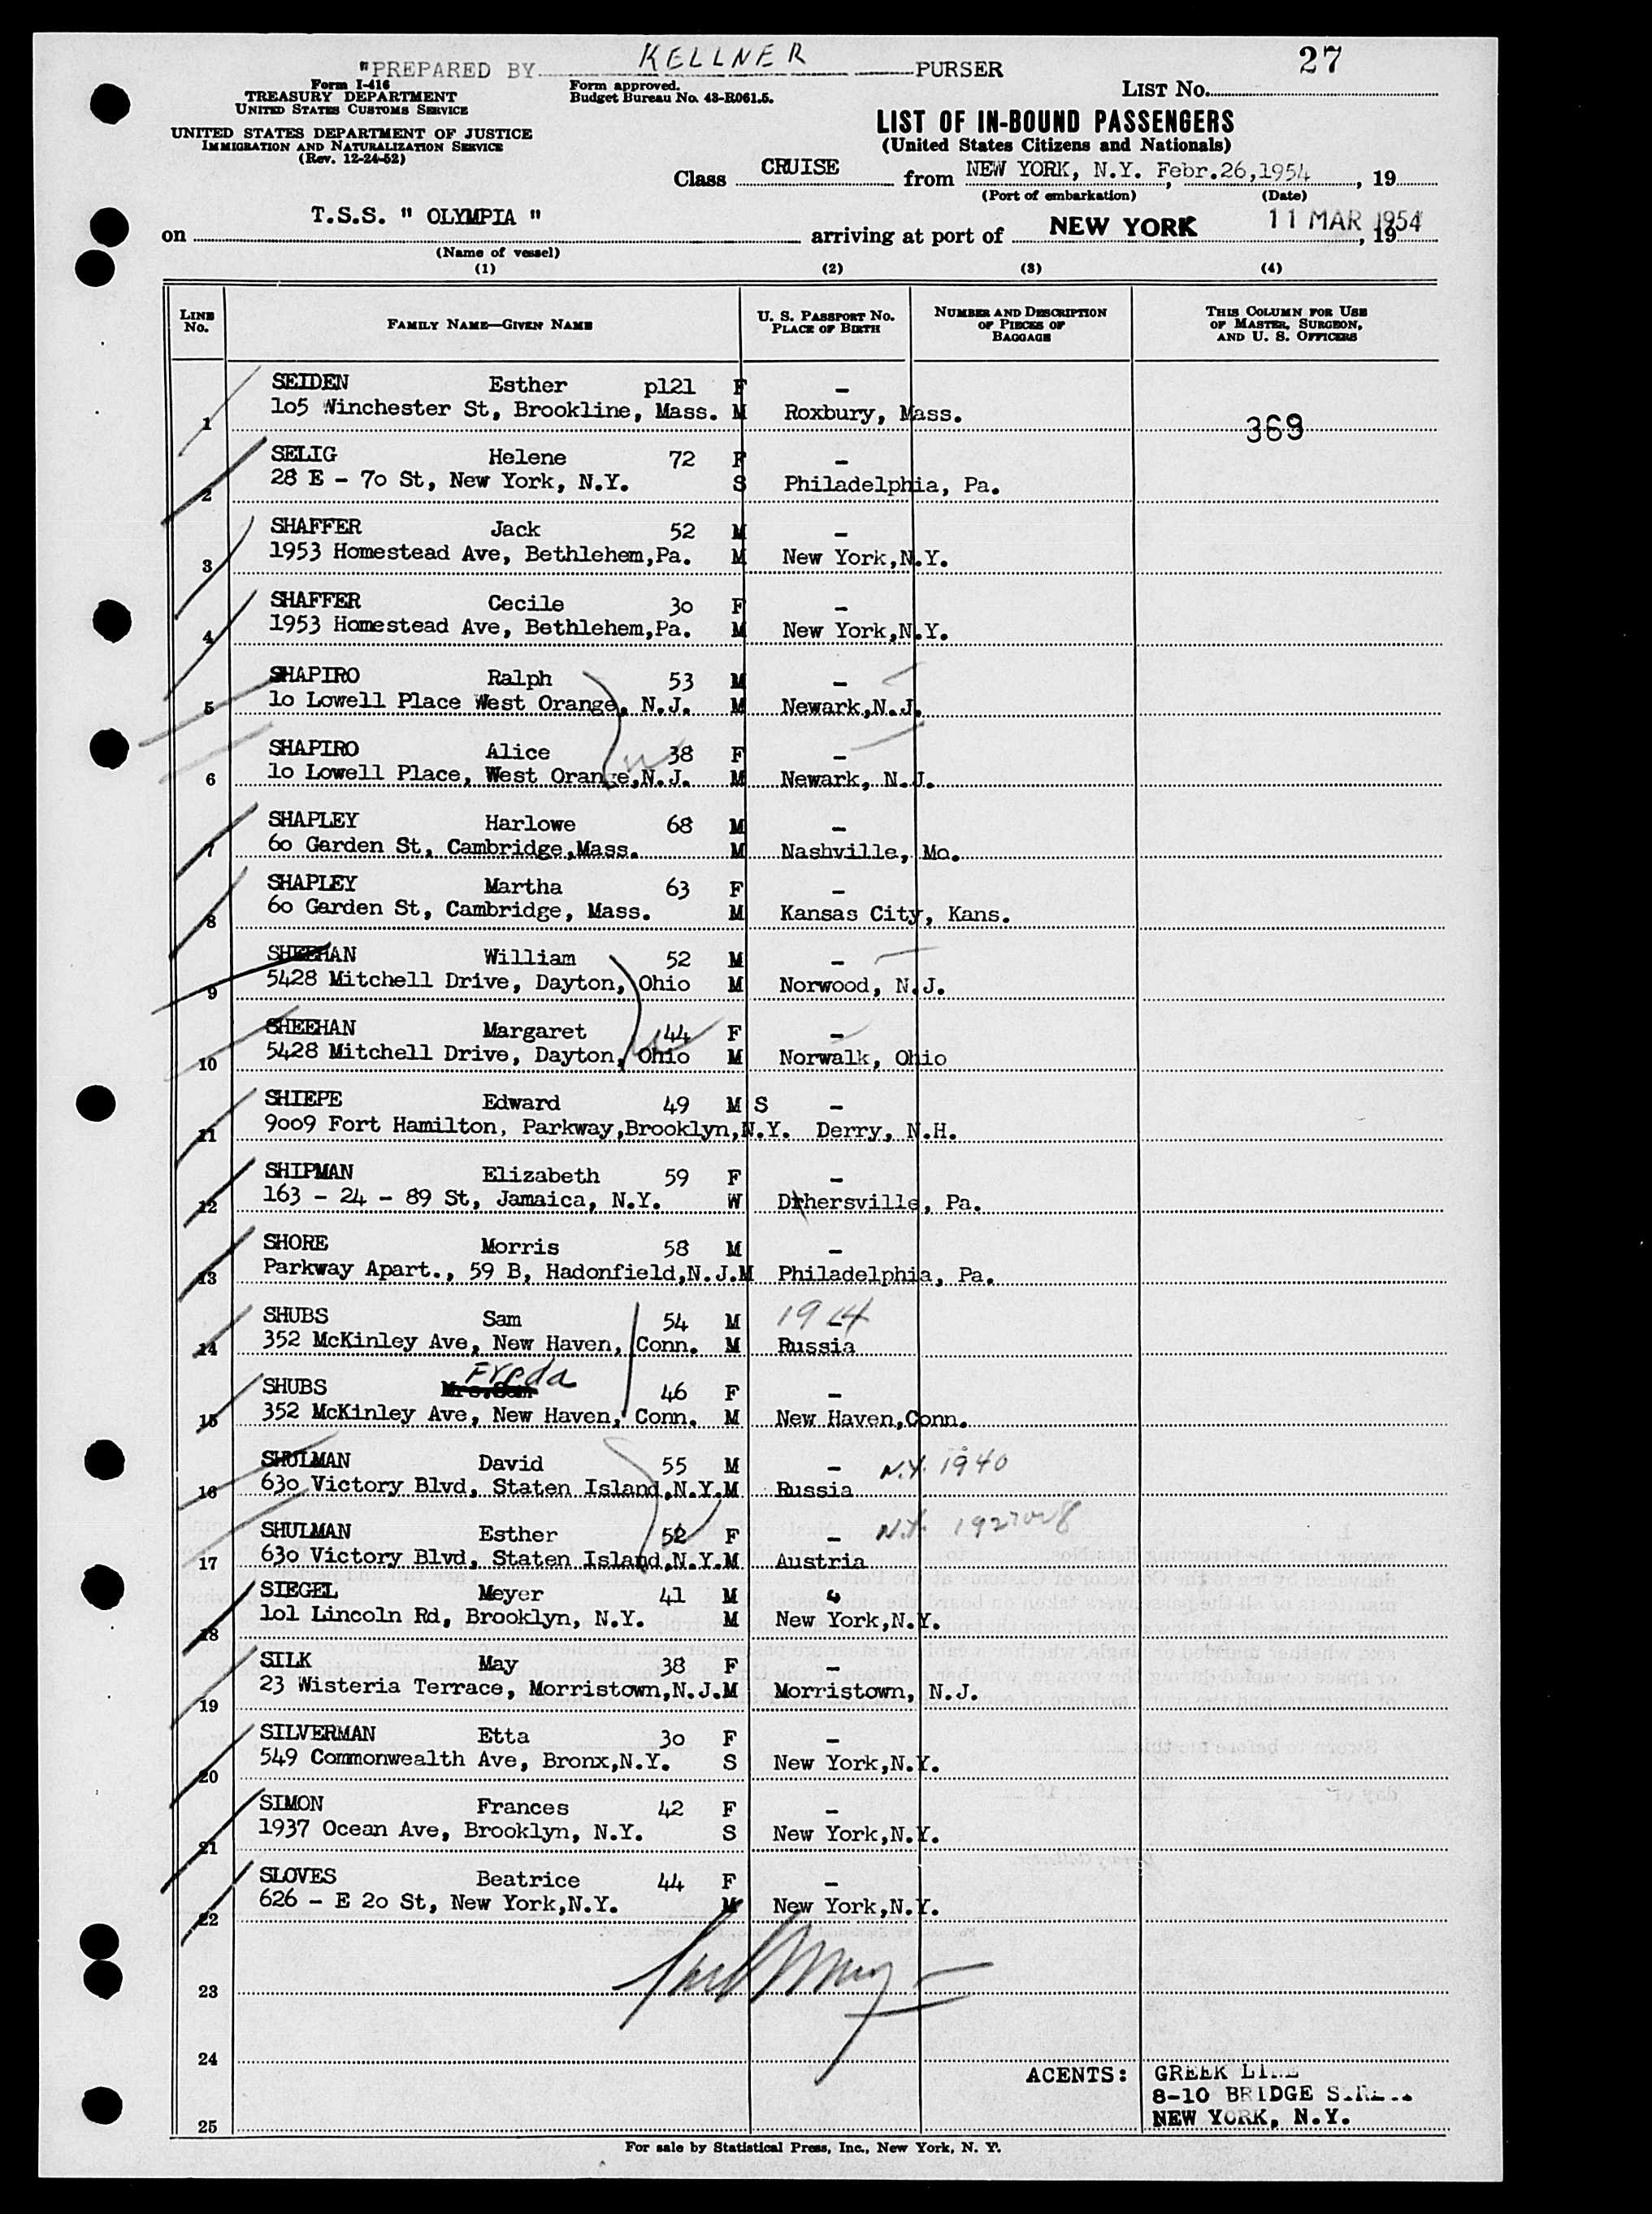 KELLNER
27
"PREPARED BY PURSER
Form I-416
TREASURY DEPARTMENT
UNITED STATES CUSTOMS SERVICE
Form approved.
Budget Bureau No. 43-R061.5.
LIST NO.
UNITED STATES DEPARTMENT OF JUSTICE
IMMIGRATION AND NATURALIZATION SERVICE
(Rev. 12-24-52)
LIST OF IN-BOUND PASSENGERS
(United States Citizens and Nationals)
Class CRUISE from NEW YORK, N.Y. Febr.26,1954, 19
(Port of embarkation) (Date)
on T.S.S. " OLYMPIA " arriving at port of NEW YORK 11 MAR 1954, 19
(Name of vessel)
(1) (2) (3) (4)
LINE No. FAMILY NAME—GIVEN NAME U. S. PASSPORT NO. PLACE OF BIRTH NUMBER AND DESCRIPTION OF PIECES OF BAGGAGE THIS COLUMN FOR USE OF MASTER, SURGEON, AND U. S. OFFICERS
SEIDEN Esther pl21 F –
1 lo5 Winchester St, Brookline, Mass. M Roxbury, Mass. 369
SELIG Helene 72 F –
2 28 E - 7o St, New York, N.Y. S Philadelphia, Pa.
SHAFFER Jack 52 M –
3 1953 Homestead Ave, Bethlehem,Pa. M New York,N.Y.
SHAFFER Cecile 3o F –
4 1953 Homestead Ave, Bethlehem,Pa. M New York,N.Y.
SHAPIRO Ralph 53 M –
5 lo Lowell Place West Orange, N.J. M Newark,N.J.
SHAPIRO Alice 38 F –
6 lo Lowell Place, West Orange,N.J. M Newark, N.J.
SHAPLEY Harlowe 68 M –
7 6o Garden St, Cambridge,Mass. M Nashville, Mo.
SHAPLEY Martha 63 F –
8 6o Garden St, Cambridge, Mass. M Kansas City, Kans.
SHEEHAN William 52 M –
9 5428 Mitchell Drive, Dayton, Ohio M Norwood, N.J.
SHEEHAN Margaret 44 F –
10 5428 Mitchell Drive, Dayton, Ohio M Norwalk, Ohio
SHIEPE Edward 49 M S –
11 9oo9 Fort Hamilton, Parkway,Brooklyn,N.Y. Derry, N.H.
SHIPMAN Elizabeth 59 F –
12 163 - 24 - 89 St, Jamaica, N.Y. W Pa.
SHORE Morris 58 M –
13 Parkway Apart., 59 B, Hadonfield,N.J.M Philadelphia, Pa.
SHUBS Sam 54 M 1914
14 352 McKinley Ave, New Haven, Conn. M Russia
Freda
SHUBS Mrs.Sam 46 F –
15 352 McKinley Ave, New Haven, Conn. M New Haven,Conn.
SHULMAN David 55 M – N.Y. 1940
16 63o Victory Blvd, Staten Island,N.Y.M Russia
SHULMAN Esther 52 F – N.Y. 1927 or 8
17 63o Victory Blvd, Staten Island,N.Y.M Austria
SIEGEL Meyer 41 M
18 lol Lincoln Rd, Brooklyn, N.Y. M New York,N.Y.
SILK May 38 F –
19 23 Wisteria Terrace, Morristown,N.J.M Morristown, N.J.
SILVERMAN Etta 3o F –
20 549 Commonwealth Ave, Bronx,N.Y. S New York,N.Y.
SIMON Frances 42 F –
21 1937 Ocean Ave, Brooklyn, N.Y. S New York,N.Y.
SLOVES Beatrice 44 F –
22 626 - E 2o St, New York,N.Y. M New York,N.Y.
23
24
AGENTS: GREEK LINE
8-10 BRIDGE STREET
NEW YORK, N.Y.
25
For sale by Statistical Press, Inc., New York, N. Y.